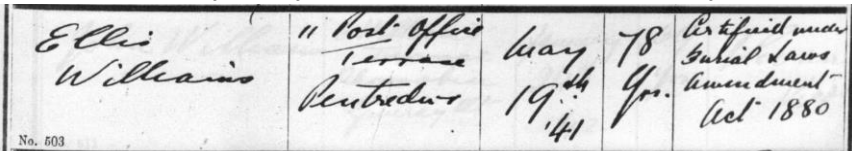 Ellis
Williams
No. 503
" Post Office
Terrace
Pentredwr
May
19th
'41
78
Yrs.
Certified under
Burial Laws
Amendment
Act 1880